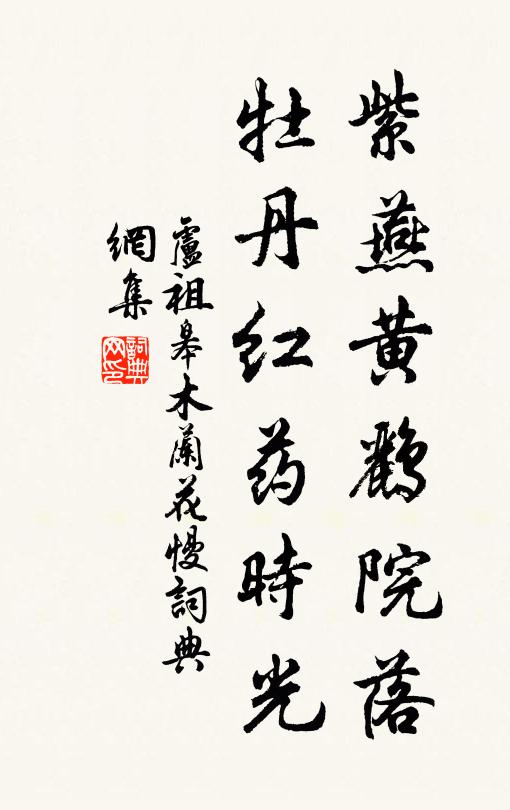 紫燕黄鸝院落
牡丹红药時光
盧祖皋木蘭花慢詞典
網集
詞典
网印